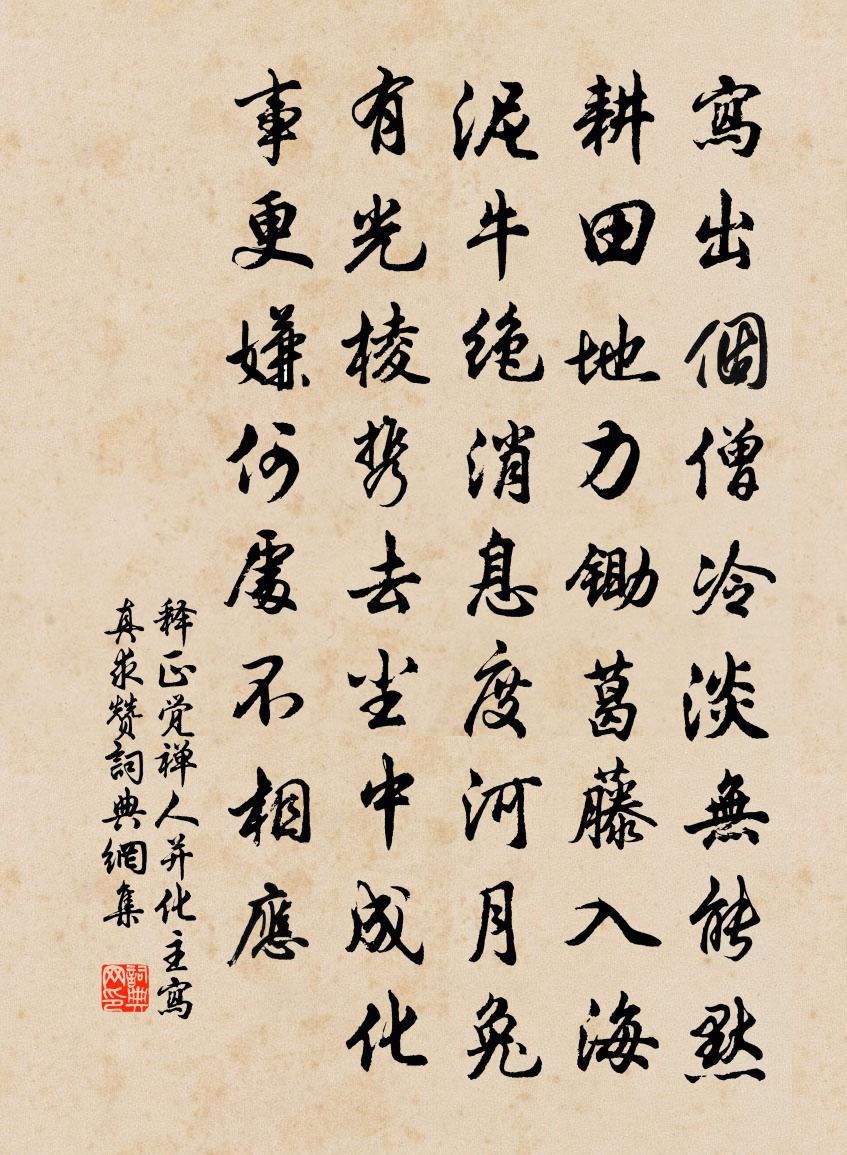 寫出個僧冷淡無能默
耕田地力鋤葛藤入海
泥牛绝消息度河月兔
有光棱携去尘中成化
事更嫌何處不相應
释正觉禅人并化主寫
真求赞詞典網集
詞典网印